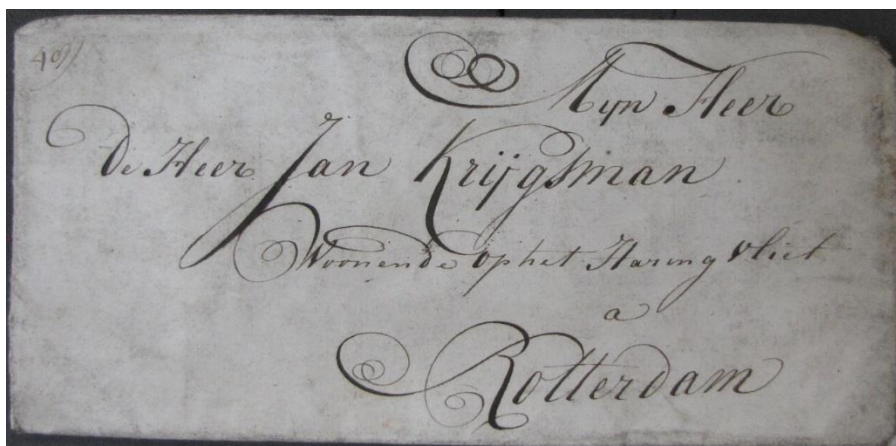 Myn Heer
De Heer Jan Krijgsman
Woonende op het Haring vliet
a
Rotterdam